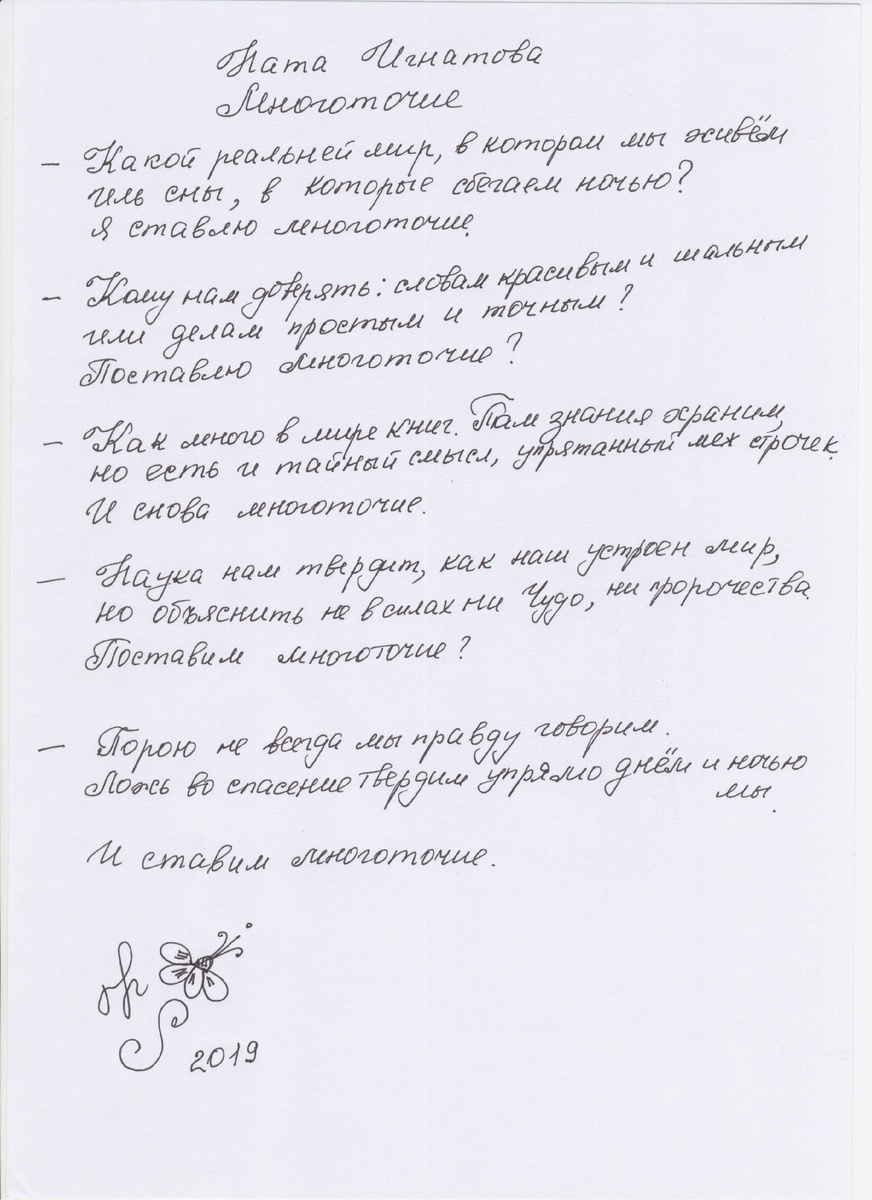 Ната Игнатова
Многоточие
— Какой реальней мир, в котором мы живём
иль сны, в которые сбегаем ночью?
Я ставлю многоточие.
— Кому нам доверять: словам красивым и шальным
или делам простым и точным?
Поставлю многоточие?
— Как много в мире книг. Там знания храним,
но есть и тайный смысл, упрятанный меж строчек.
И снова многоточие.
— Наука нам твердит, как наш устроен мир,
но объяснить не в силах ни Чудо, ни пророчества.
Поставим многоточие?
— Порою не всегда мы правду говорим.
Ложь во спасение твердим упрямо днём и ночью
мы.
И ставим многоточие.
2019